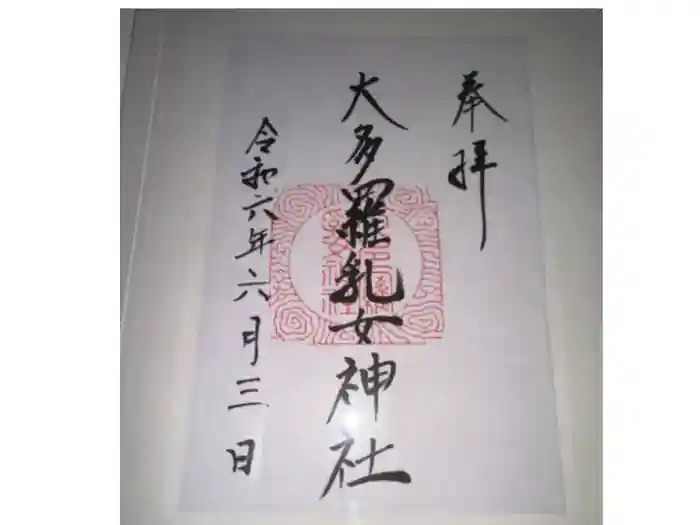 奉拝
大多羅乳女神社
令和六年六月三日